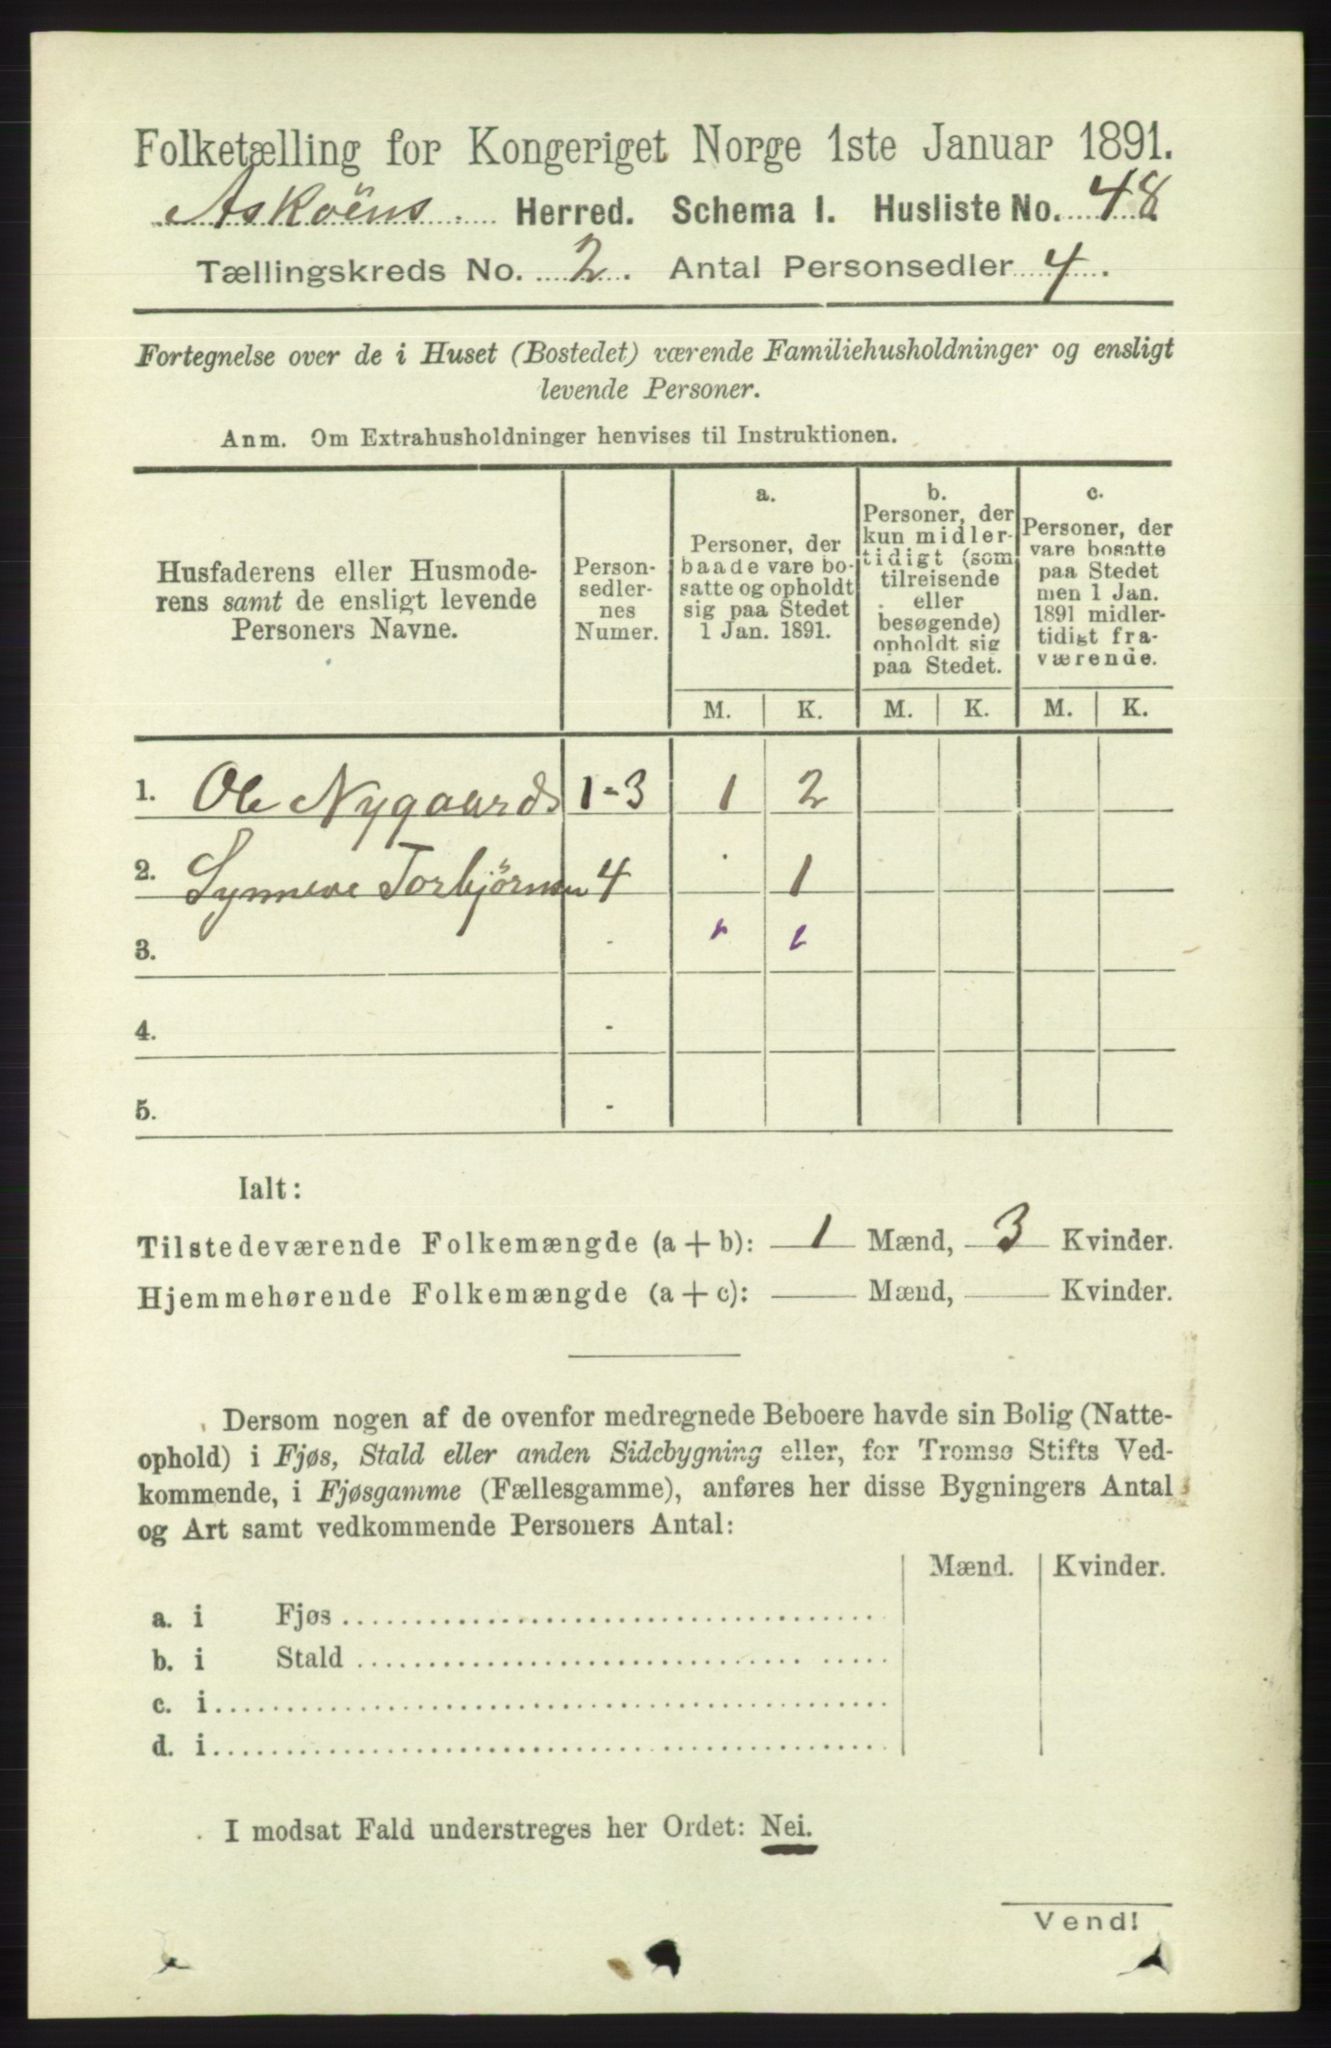 Folketælling for Kongeriget Norge 1ste Januar 1891.
Askøens Herred. Schema I. Husliste No. 48
Tællingskreds No. 2. Antal Personsedler 4.
Fortegnelse over de i Huset (Bostedet) værende Familiehusholdninger og ensligt
levende Personer.
Anm. Om Extrahusholdninger henvises til Instruktionen.
Husfaderens eller Husmode-
rens samt de ensligt levende
Personers Navne.
Person-
sedler-
nes
Numer.
a.
Personer, der
baade vare bo-
satte og opholdt
sig paa Stedet
1 Jan. 1891.
b.
Personer, der
kun midler-
tidigt (som
tilreisende
eller
besøgende)
opholdt sig
paa Stedet.
c.
Personer, der
vare bosatte
paa Stedet
men 1 Jan.
1891 midler-
tidigt fra-
værende.
M. K. M. K. M. K.
1. Ole Nygaards 1-3 1 2
2. Synneve Torbjørnsen 4 · 1
3. -
4. -
5. -
Ialt:
Tilstedeværende Folkemængde (a + b): 1 Mænd, 3 Kvinder.
Hjemmehørende Folkemængde (a + c): Mænd, Kvinder.
Dersom nogen af de ovenfor medregnede Beboere havde sin Bolig (Natte-
ophold) i Fjøs, Stald eller anden Sidebygning eller, for Tromsø Stifts Ved-
kommende, i Fjøsgamme (Fællesgamme), anføres her disse Bygningers Antal
og Art samt vedkommende Personers Antal:
Mænd. Kvinder.
a. i Fjøs
b. i Stald
c. i
d. i
I modsat Fald understreges her Ordet: Nei.
Vend!